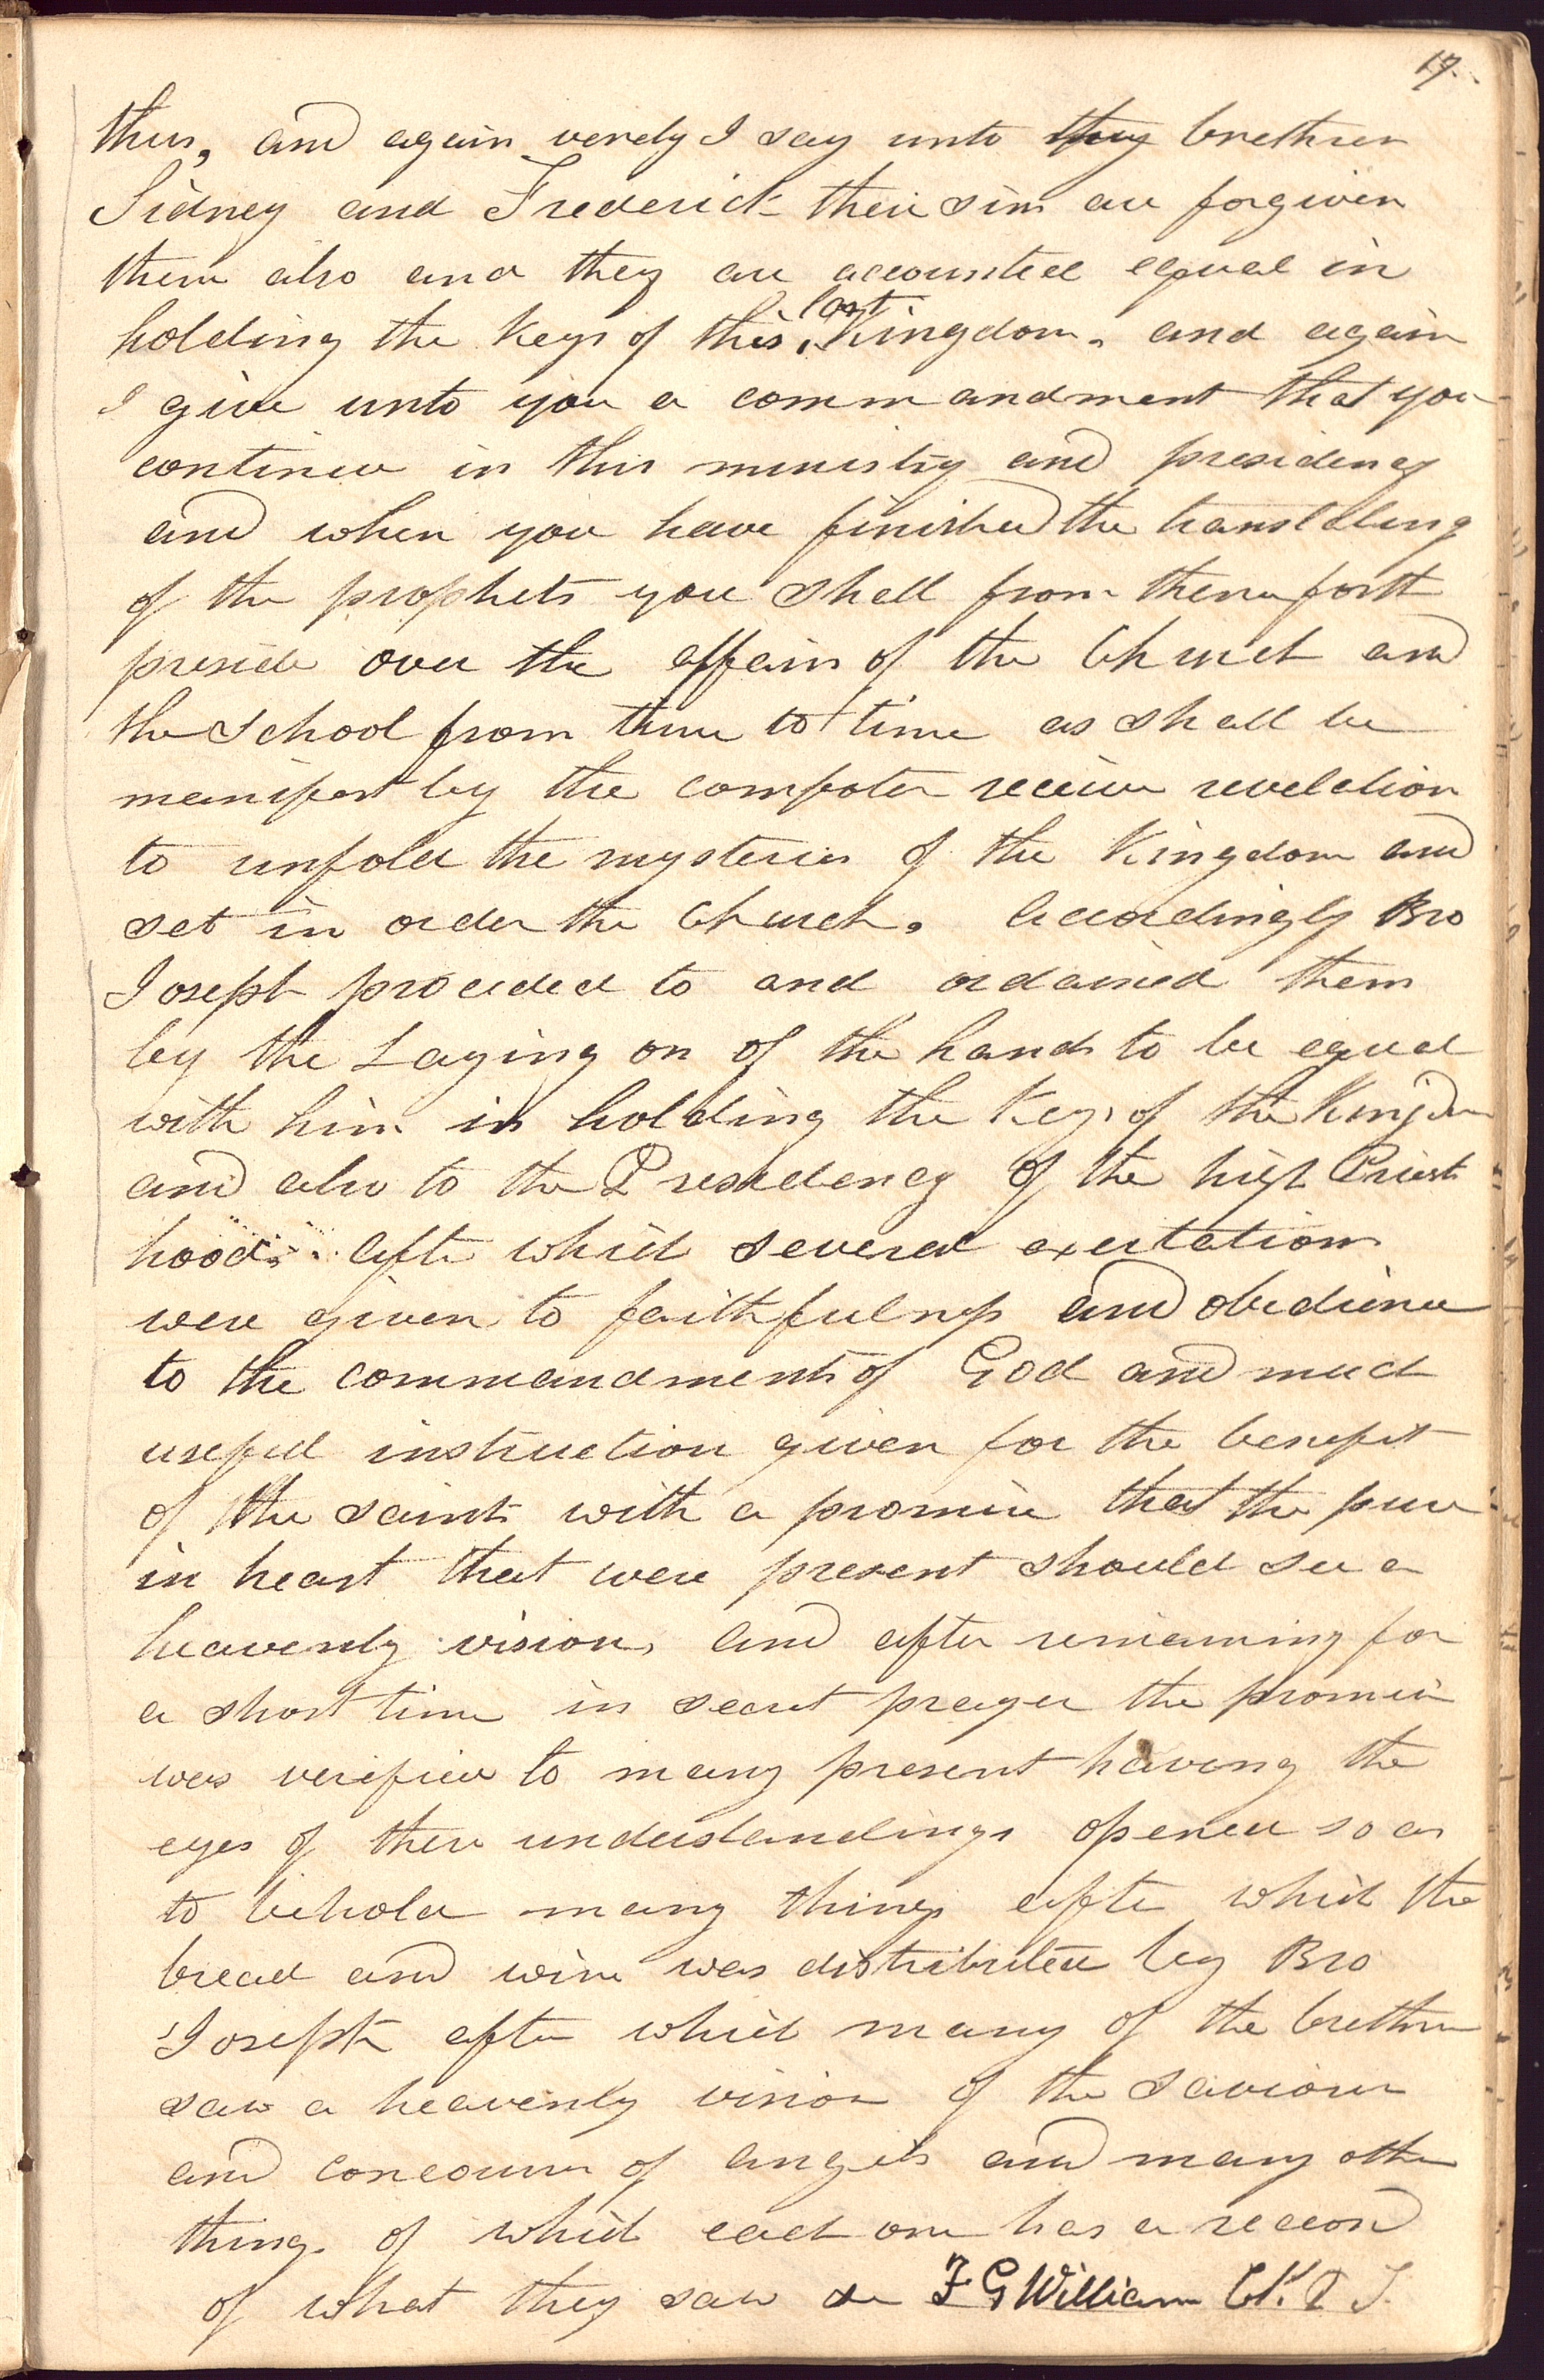 17.
thus, and again verely I say unto thy brethren
Sidney and Frederick their sins are forgiven
them also and they are accounted equal in
holding the keys of this last Kingdom. and again
I give unto you a commandment that you
continue in this ministry and presidency
and when you have finished the translating
of the prophets you shall from thenceforth
preside over the affairs of the Church and
the School from time to time as shall be
manifest by the comforter receive revelation
to unfold the mysteries of the Kingdom and
set in order the Church. Accordingly Bro
Joseph proceded to and ordained them
by the Laying on of the hands to be equal
with him in holding the Keys of the Kingdom
and also to the Presidency of the high Priest
hood. after which several exertations
were given to faithfulness and obedience
to the commandments of God and much
useful instruction given for the benefit
of the saints with a promise that the pure
in heart that were present should see a
heavenly vision, and after remaining for
a short time in secret prayer the promise
was verified to many present having the
eyes of there understandings opened so as
to behold many things after which the
bread and wine was distributed by Bro
Joseph after which many of the brethren
saw a heavenly vision of the saviour
and concourse of angels and many other
things of which each one has a record
of what they saw &c F G Williams Clk. P T.